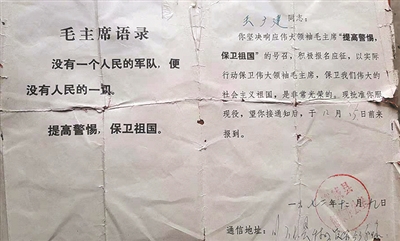 毛主席语录
没有一个人民的军队，便
没有人民的一切。
提高警惕，保卫祖国。
同志：
你坚决响应伟大领袖毛主席“提高警惕，
保卫祖国”的号召，积极报名应征，以实际
行动保卫伟大领袖毛主席、保卫我们伟大的
社会主义祖国，是非常光荣的。现批准你服
现役，望你接通知后，于12月15日前来
报到。
一九七二年十二月九日
通信地址：